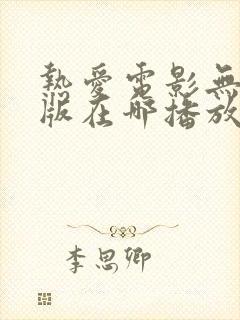 熱愛電影無
版在哪播放
李思卿